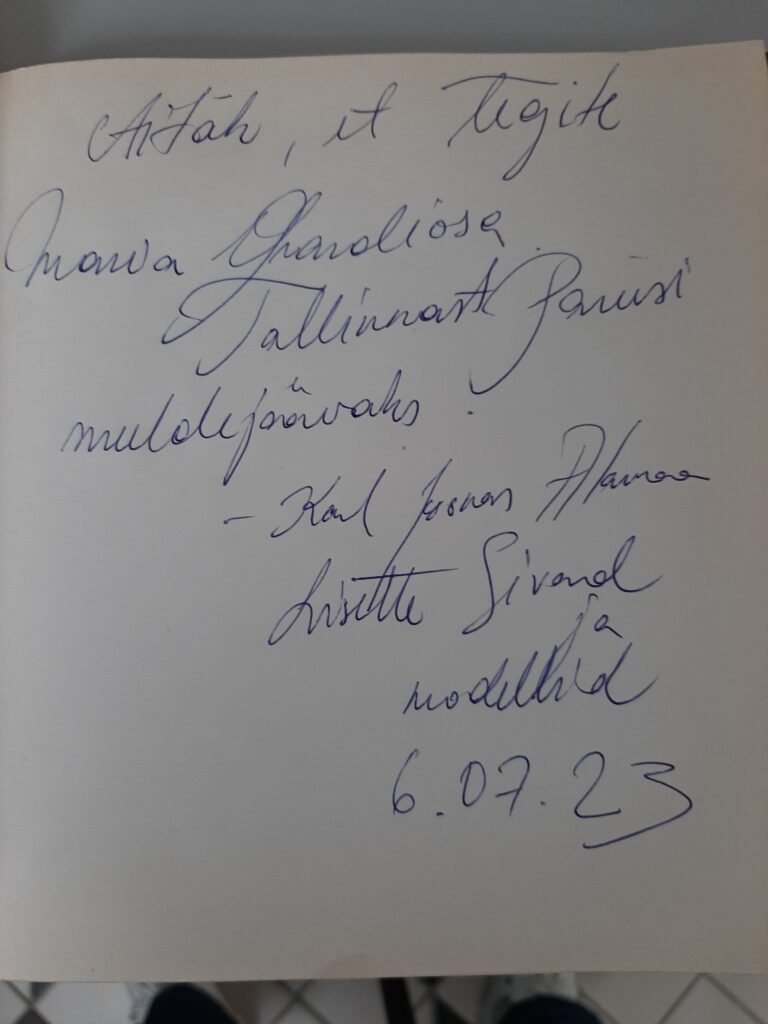 Aitäh, et tegite
Tallinnast Pariisi
muldepäevaks.
- Karl Joonas Alamaa
Lisette Sivard
ja
modellid
6.07.23